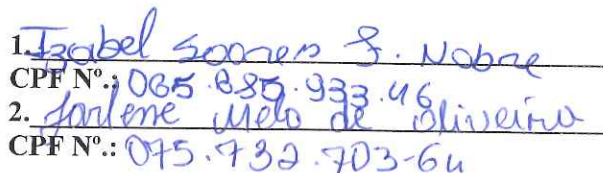 1. Izabel Soares F. Nobre
CPF Nº.: 065.685.933.46
2. Jarlene Melo de Oliveira
CPF Nº.: 075.732.703-64